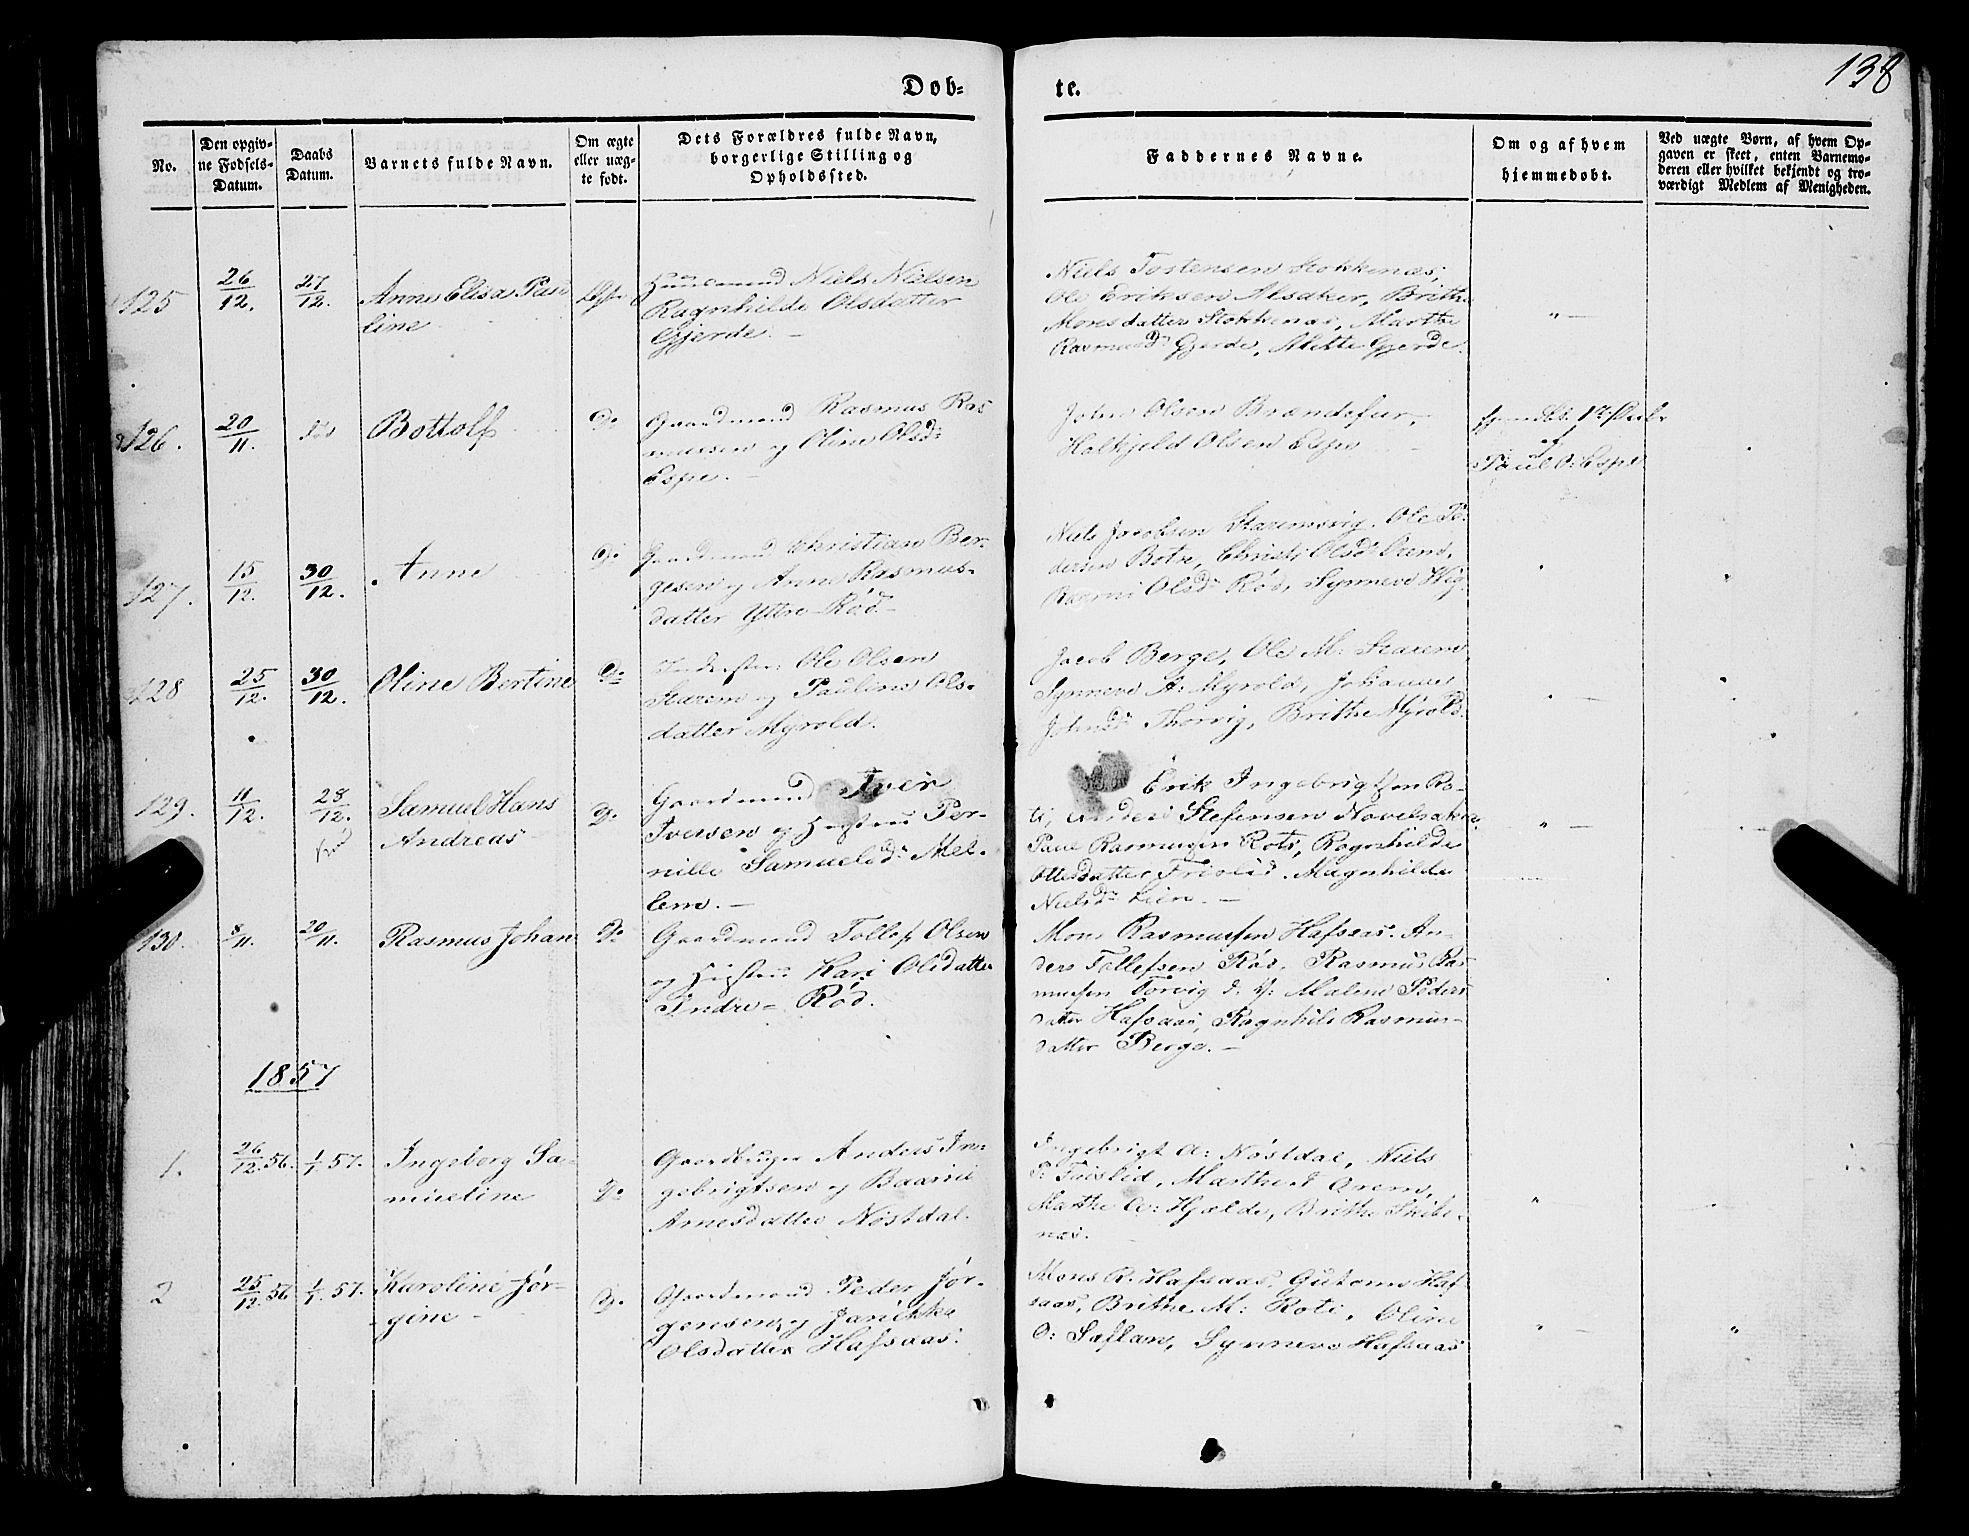 138
Dob-
te.
No.
Den opgiv-
ne Fødsels-
Datum.
Daabs
Datum.
Barnets fulde Navn.
Om ægte
eller uæg-
te født.
Dets Forældres fulde Navn,
borgerlige Stilling og
Opholdssted.
Faddernes Navne.
Om og af hvem
hjemmedøbt.
Ved uægte Børn, af hvem Op-
gaven er skeet, enten Barnemo-
deren eller hvilket bekjendt og tro-
værdigt Medlem af Menigheden.
125
26/12.
27/12.
Anne Elisa Pau-
line
Huusmand Niels Nielsen
Ragnhilde Olsdatter
Gjerde. -
Niels Tostensen Stokkenæs,
Ole Eriksen Alsaker, Brithe
Monsdatter Stokkenæs, Marthe
Rasmusdr Gjerde, Mette Gjerde.
126.
20/11.
Bottolf
Do
Gaardmand Rasmus Ras
mussen og Oline Olsdr
Espe. -
John Olsen Brændefur,
Halkjeld Olsen Espe
af
Paul O: Espe
127.
15/12.
30/12.
Anne
Do
Gaardmand Christian Ber-
gesen og Anne Rasmus-
datter Yttre-Rød -
Niels Jacobsen Ole Pe-
dersen Botne, Olsdr
Olsdr Rød, Synneve Vig.
128
25/12.
30/12.
Oline Bertine
Do
Ole Olsen
Starem og Pauline Ols-
datter Myrold.
Jacob Berge, Ole M: Starem,
Synneve A: Myrold, Johanne
Johnsdr Thorvig, Brithe Myrold.
129.
11/12.
28/12.
Samuel Hans
Andreas
Do
Gaardmand Iver
Iversen og Hustru Per-
nille Samuelsdr Mel-
lem. -
Erik Ingebrigtsen Ro-
ti, Anders Stefensen Navelsaker,
Paul Rasmusen Roti, Ragnhilde
Ottesdatter Frislid. Magnhilde
Nielsdr Lien. -
130.
8/11.
20/11.
Rasmus Johan
Do
Gaardmand Tollef Olsen
og Hustru Kari Olsdatter
Indre- Rød.
Mons Rasmussen Hafsaas. An-
ders Tollefsen Rød. Rasmus Ras
mussen Torvig d: y: Malene Peders
datter Hafsaas, Ragnhile Rasmus-
datter Berge. -
1857
1.
26/12.56.
1/1 57.
Ingeborg Sa-
mueline
Do
Gaardbruger Anders In-
gebrigtsen og Baarni
Arnesdatter Nøstdal.
Ingebrigt A: Nøstdal, Niels
P: Frislid, Marthe I
Marthe O: Hjælde, Brithe Skibe-
næs.
2
25/12.56
1/1. 57.
Karoline Jør-
gine -
Do
Gaardmand Peder Jør-
gensen og Janikke
Olsdatter Hafsaas.
Mons R. Hafsaas, Guttorm Haf
saas, Brithe M: Roti, Oline
O: Sæflan, Synneve Hafsaas